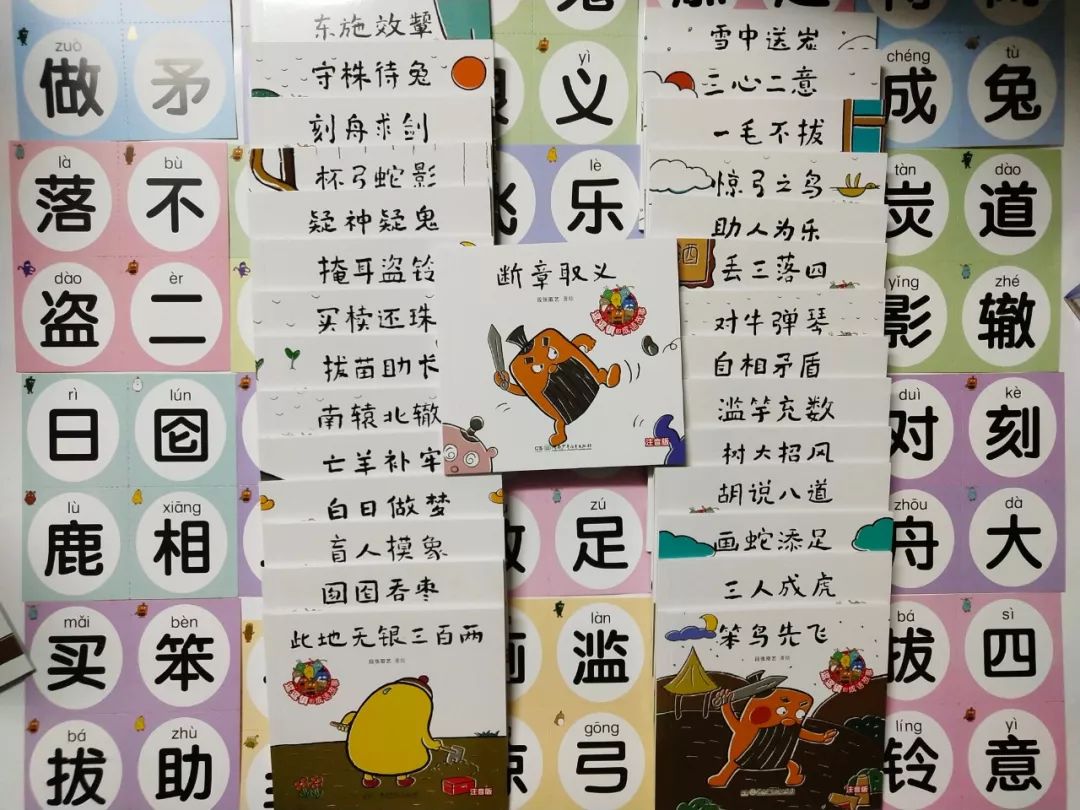 zuò
做 矛
là bù
落 不
dào èr
盗 二
rì lún
日 囵
lù xiāng
鹿 相
mǎi bèn
买 笨
bá zhù
拔 助
东施效颦
守株待兔
刻舟求剑
杯弓蛇影
疑神疑鬼
掩耳盗铃
买椟还珠
拔苗助长
南辕北辙
亡羊补牢
白日做梦
盲人摸象
囫囵吞枣
此地无银三百两
段张取艺 著绘
注音版
yì
义
lè
乐
断章取义
段张取艺 著绘
注音版
zú
足
làn
滥
gōng
弓
雪中送炭
三心二意
一毛不拔
惊弓之鸟
助人为乐
丢三落四
对牛弹琴
自相矛盾
滥竽充数
树大招风
胡说八道
画蛇添足
三人成虎
笨鸟先飞
段张取艺 著绘
注音版
chéng tù
成 兔
tàn dào
炭 道
yǐng zhé
影 辙
duì kè
对 刻
zhōu dà
舟 大
bá sì
拔 四
líng yì
铃 意